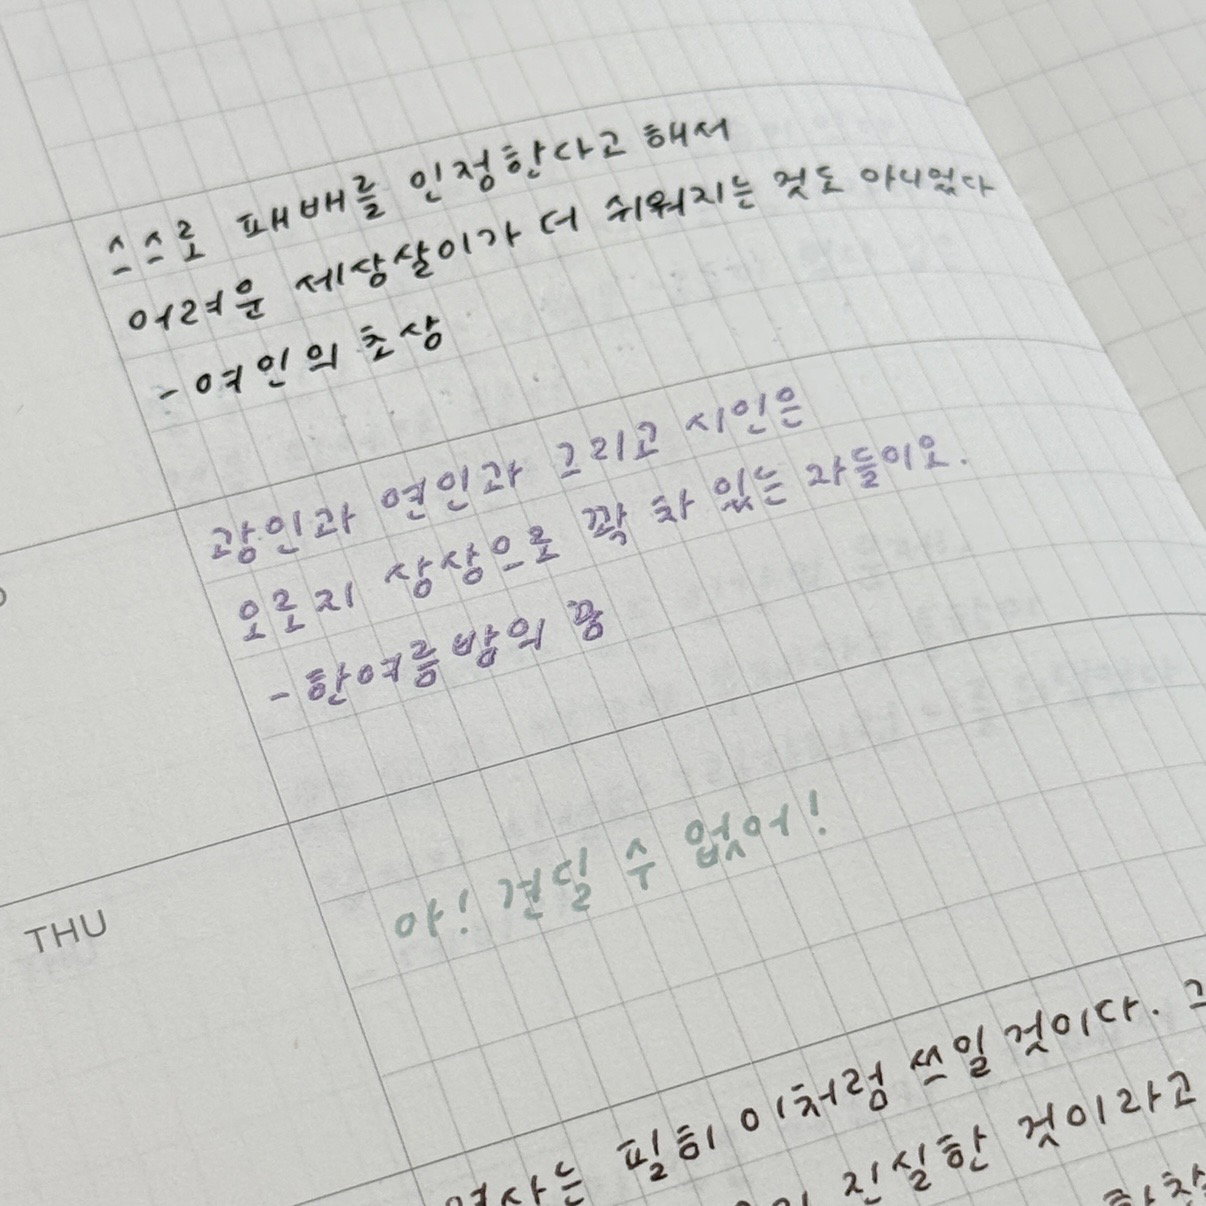 스스로 패배를 인정한다고 해서
어려운 세상살이가 더 쉬워지는 것도 아니었다
- 여인의 초상
광인과 연인과 그리고 시인은
오로지 상상으로 꽉 차 있는 자들이오.
- 한여름밤의 꿈
아! 견딜 수 없어!
THU
역사는 필히 이처럼 쓰일 것이다.
진실한 것이라고